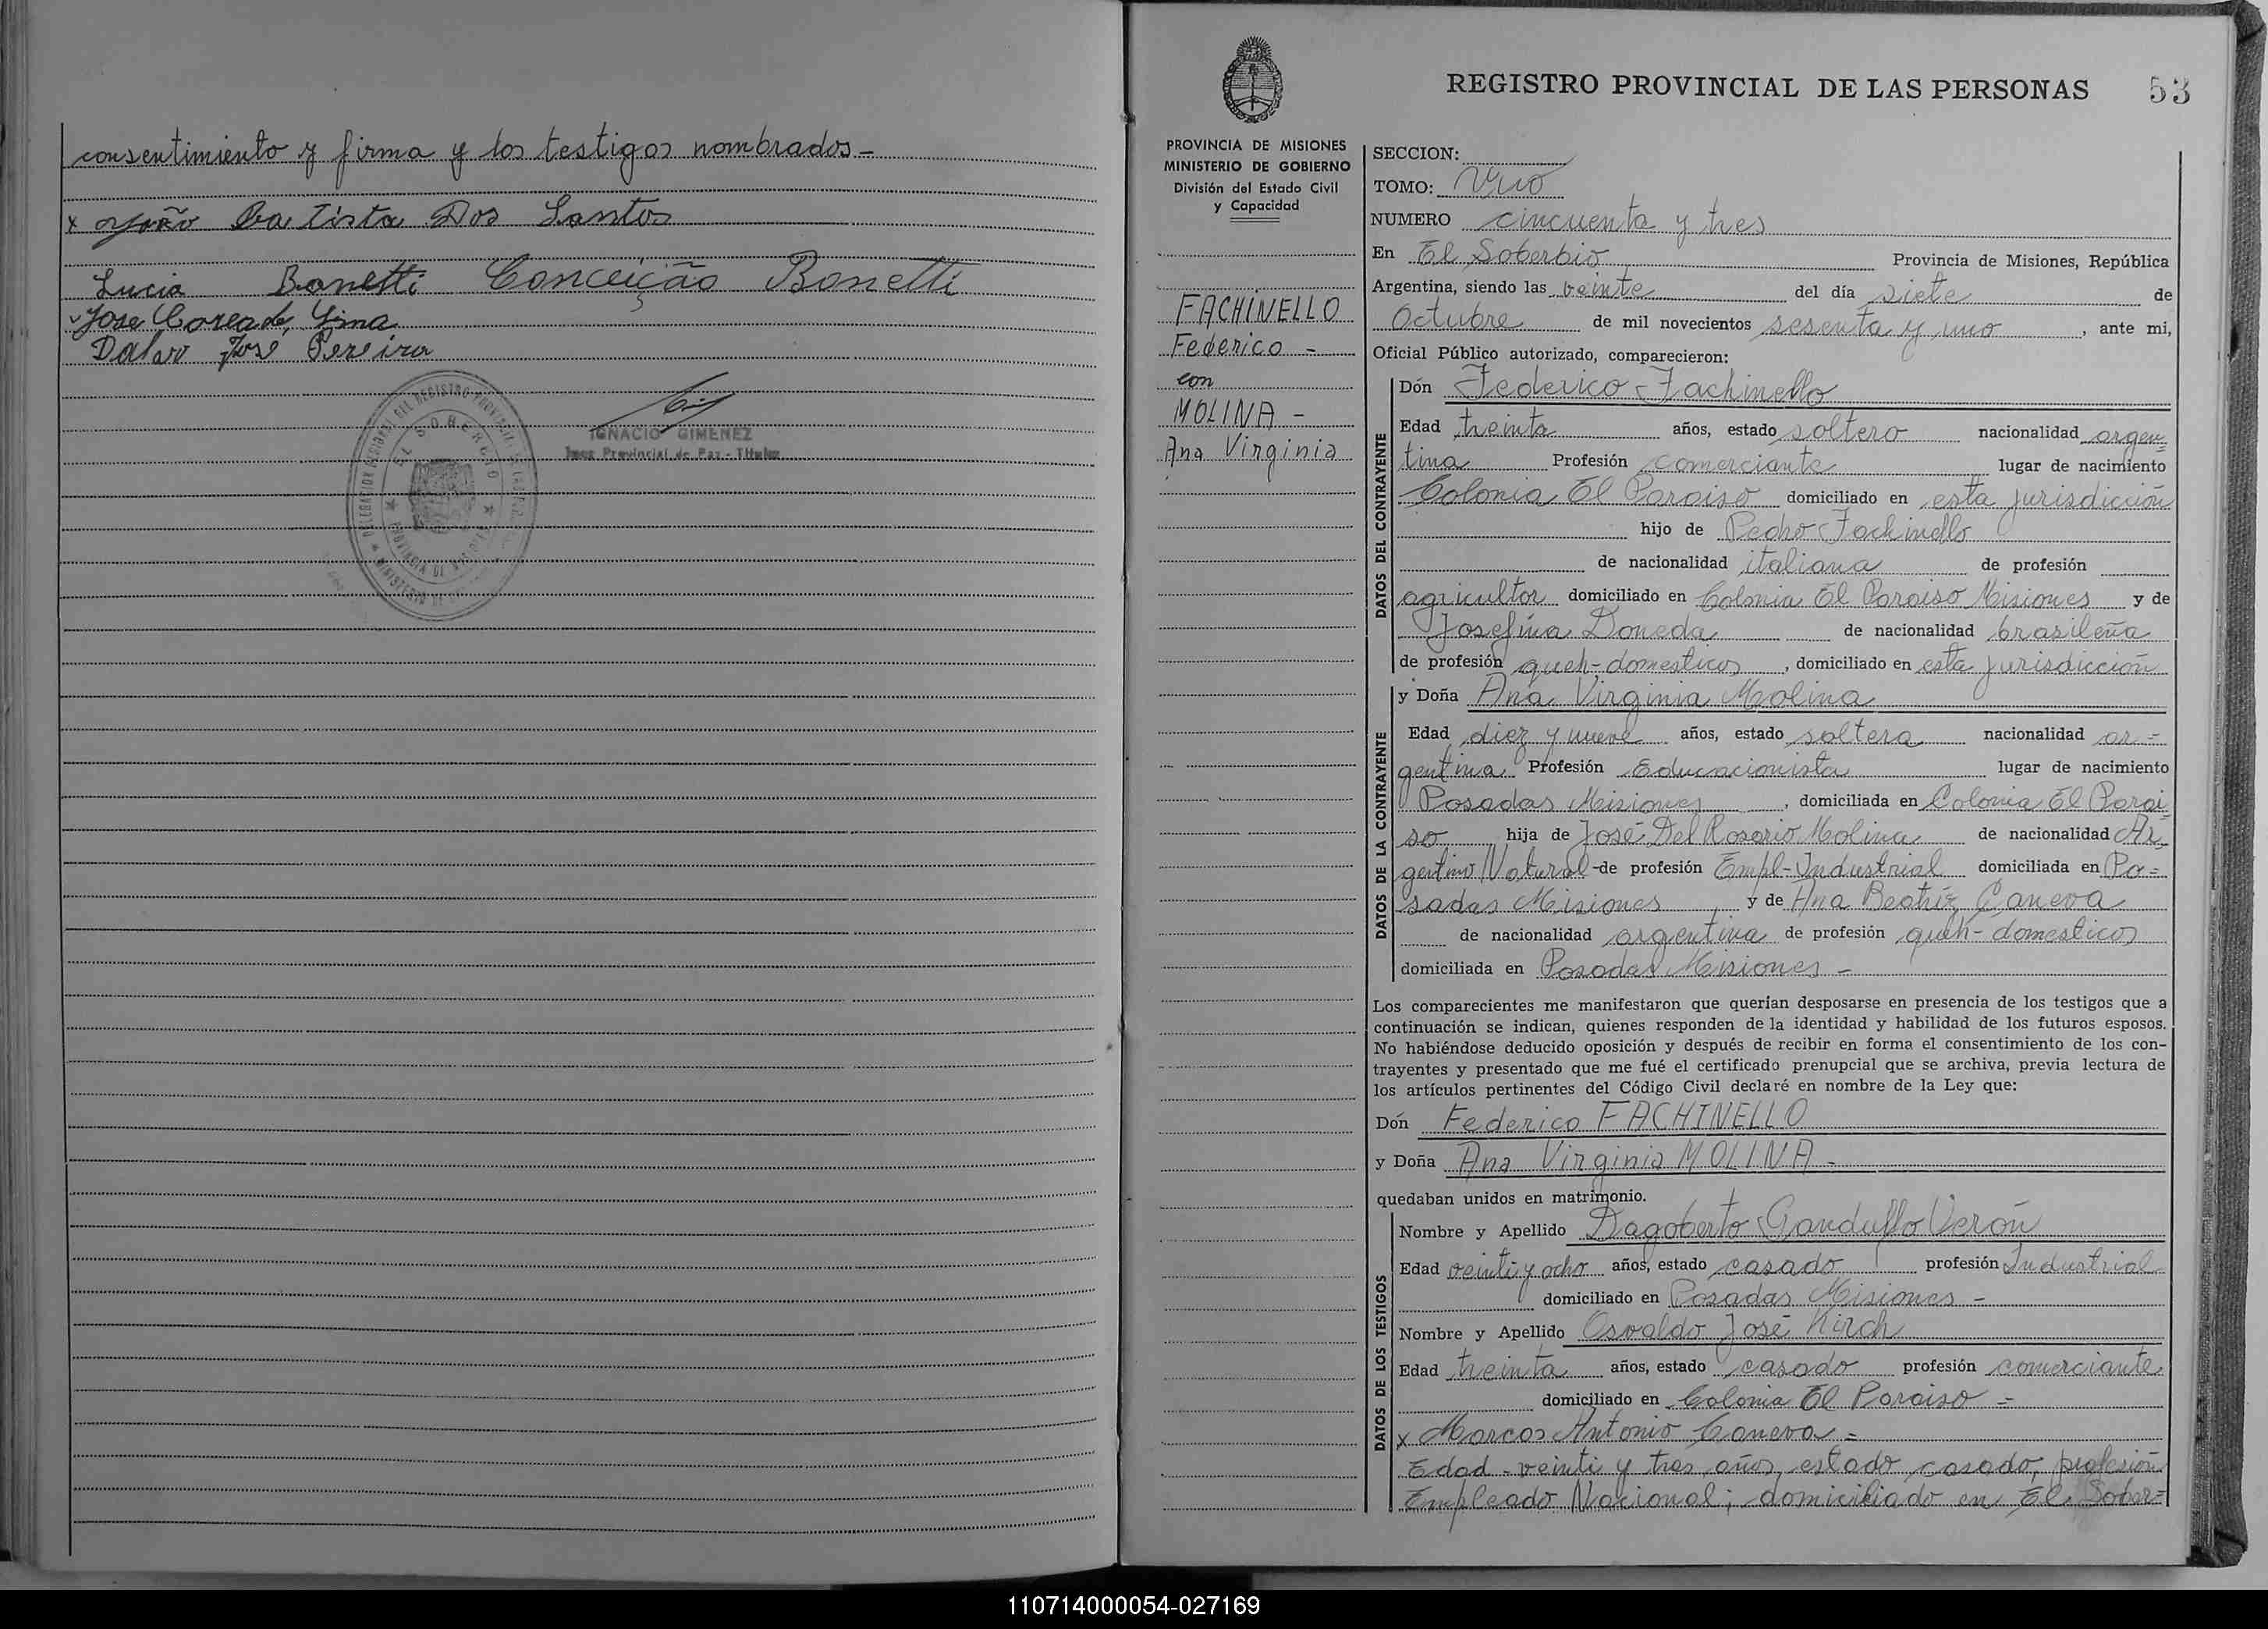 consentimiento y firma y los testigos nombrados -
x João Batista Dos Santos
Lucia Bonetti Conceição Bonetti
Jose Correa de Lima
Dalar José Pereira
IGNACIO GIMENEZ
Juez Provincial de Paz - Titular
EL SOBERBIO
REGISTRO PROVINCIAL DE LAS PERSONAS 53
PROVINCIA DE MISIONES
MINISTERIO DE GOBIERNO
División del Estado Civil
y Capacidad
FACHINELLO
Federico -
con
MOLINA -
Ana Virginia
SECCION:
TOMO: Uno
NUMERO cincuenta y tres
En El Soberbio Provincia de Misiones, República
Argentina, siendo las veinte del día siete de
Octubre de mil novecientos sesenta y uno, ante mi,
Oficial Público autorizado, comparecieron:
DATOS DEL CONTRAYENTE
Dón Federico Fachinello
Edad treinta años, estado soltero nacionalidad argen=
tina Profesión comerciante lugar de nacimiento
Colonia El Paraiso domiciliado en esta jurisdicción
hijo de Pedro Fachinello
de nacionalidad italiana de profesión
agricultor domiciliado en Colonia El Paraiso Misiones y de
Josefina Doneda de nacionalidad brasileña
de profesión queh-domesticos, domiciliado en esta jurisdicción
DATOS DE LA CONTRAYENTE
y Doña Ana Virginia Molina
Edad diez y nueve años, estado soltera nacionalidad ar=
gentina Profesión Educacionista lugar de nacimiento
Posadas Misiones, domiciliada en Colonia El Parai
so hija de José Del Rosario Molina de nacionalidad Ar=
gentino Natural de profesión Empl-Industrial domiciliada en Po=
sadas Misiones y de Ana Beatriz Caneva
de nacionalidad argentina de profesión queh-domesticos
domiciliada en Posadas Misiones -
Los comparecientes me manifestaron que querían desposarse en presencia de los testigos que a
continuación se indican, quienes responden de la identidad y habilidad de los futuros esposos.
No habiéndose deducido oposición y después de recibir en forma el consentimiento de los con-
trayentes y presentado que me fué el certificado prenupcial que se archiva, previa lectura de
los artículos pertinentes del Código Civil declaré en nombre de la Ley que:
Dón Federico FACHINELLO
y Doña Ana Virginia MOLINA -
quedaban unidos en matrimonio.
DATOS DE LOS TESTIGOS
Nombre y Apellido Dagoberto Gandulfo Verón
Edad veinti y ocho años, estado casado profesión Industrial
domiciliado en Posadas Misiones -
Nombre y Apellido Osvaldo José Kirch
Edad treinta años, estado casado profesión comerciante
domiciliado en Colonia El Paraiso =
x Marcos Antonio Caneva =
Edad - veinti y tres años, estado casado, profesión
Empleado Nacional; domiciliado en El Sober=
110714000054-027169